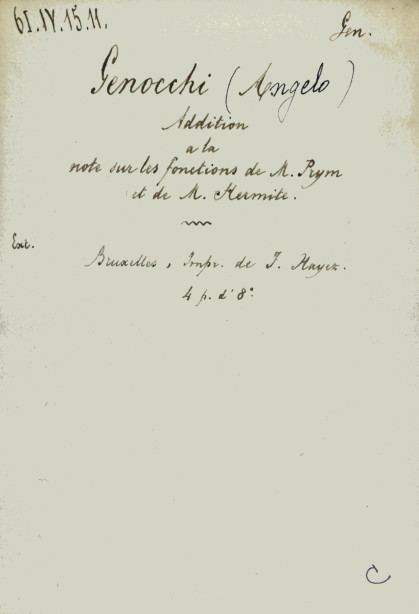 61.IV.15.11.
Gen.
Genocchi (Angelo)
Addition
a la
note sur les fonctions de M. Prym
et de M. Hermite.
Ext.
Bruxelles, Impr. de F. Hayez.
4 p. d' 8°.
C